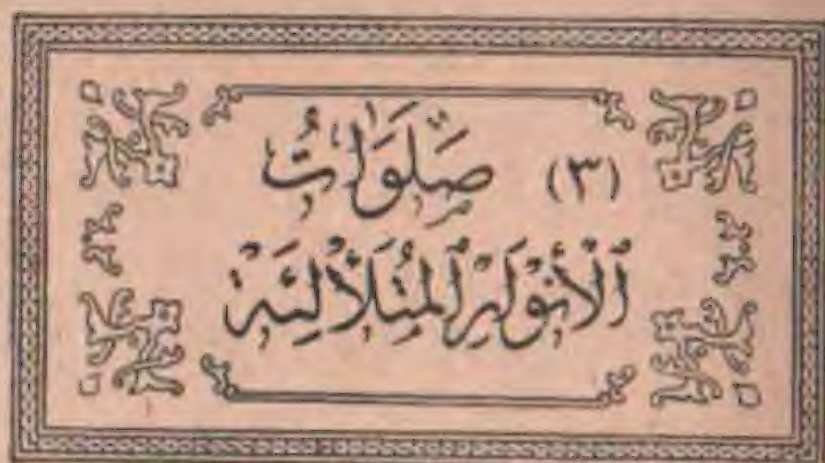 (٣) صَلَوَاتُ
ٱلْأَنْوَارِ ٱلْمُتَلَأْلِئَةِ